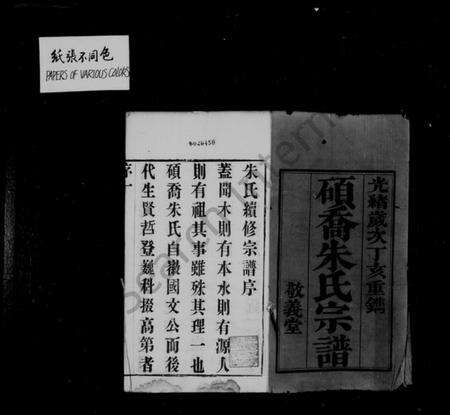 紙張不同色
PAPERS OF VARIOUS COLORS
光緒歲次丁亥重鐫
碩喬朱氏宗譜
敬義堂
朱氏續修宗譜序
蓋聞木則有本水則有源人
則有祖其事雖殊其理一也
碩喬朱氏自徽國文公而後
代生賢哲登巍科掇高第者
序一